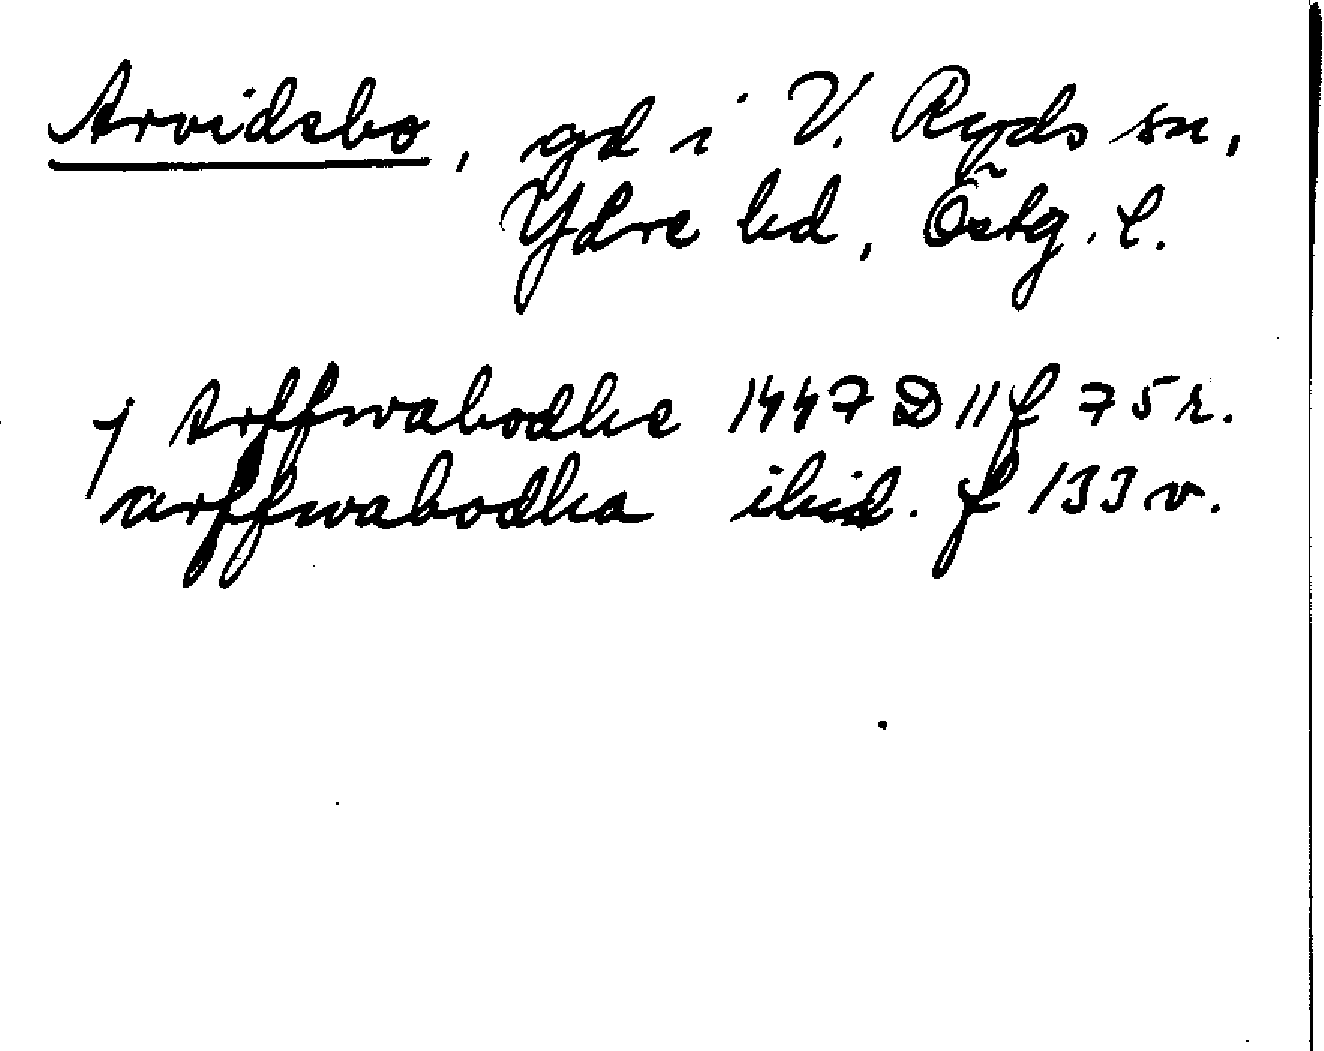 Arvidsbo, gd i V. Ryds sn,
Ydre hd, Östg. l.
j Arffwabodhe 1447 D 11 f 75 r.
arffwabodha ibid. f 133 v.